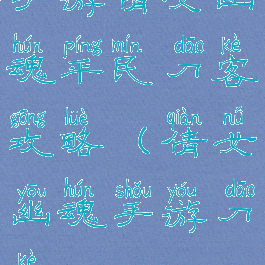 手 游 倩 女 幽
hún píng mín dāo kè
魂 平 民 刀 客
gōng lüè qiàn nǚ
攻 略 ( 倩 女
yōu hún shǒu yóu dāo
幽 魂 手 游 刀
kè